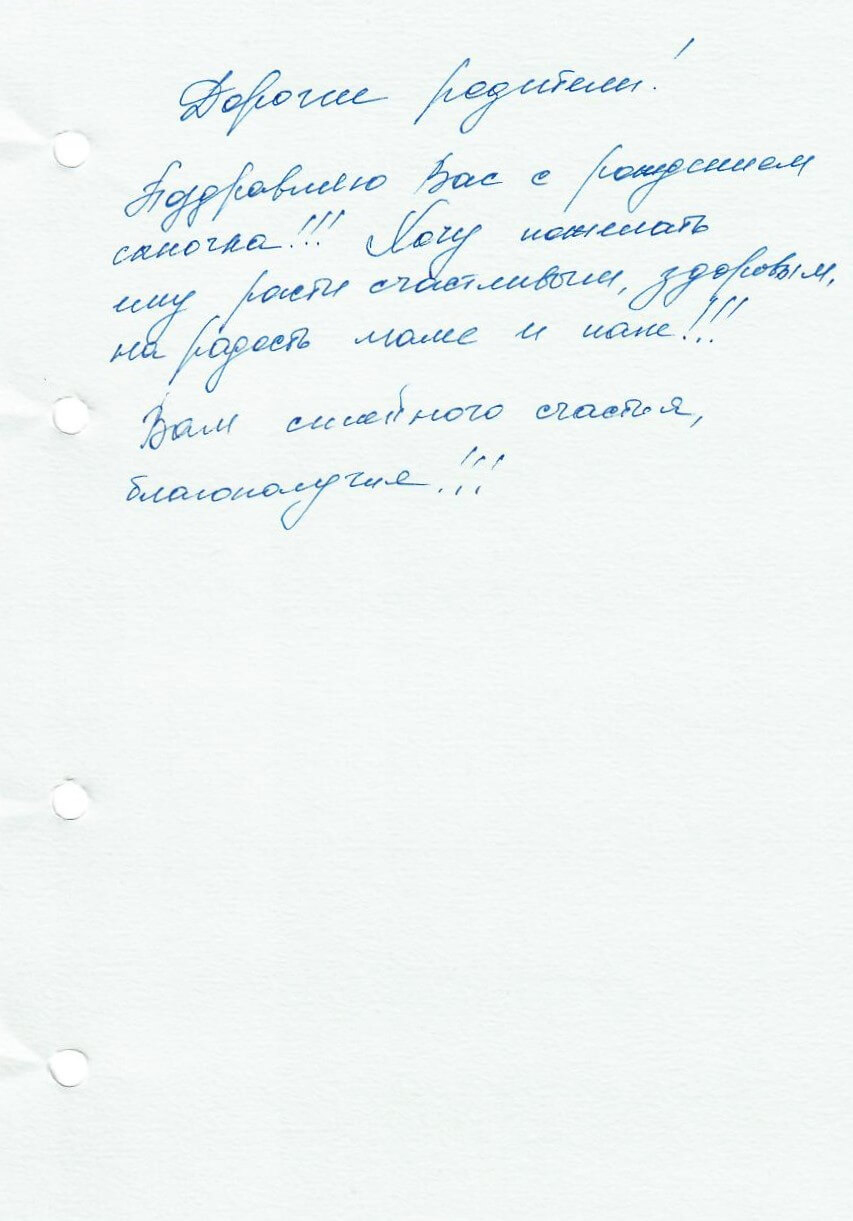 Дорогие родители!
Поздравляю Вас с рождением
сыночка!!! Хочу пожелать
ему расти счастливым, здоровым,
на радость маме и папе!!!
Вам семейного счастья,
благополучия!!!